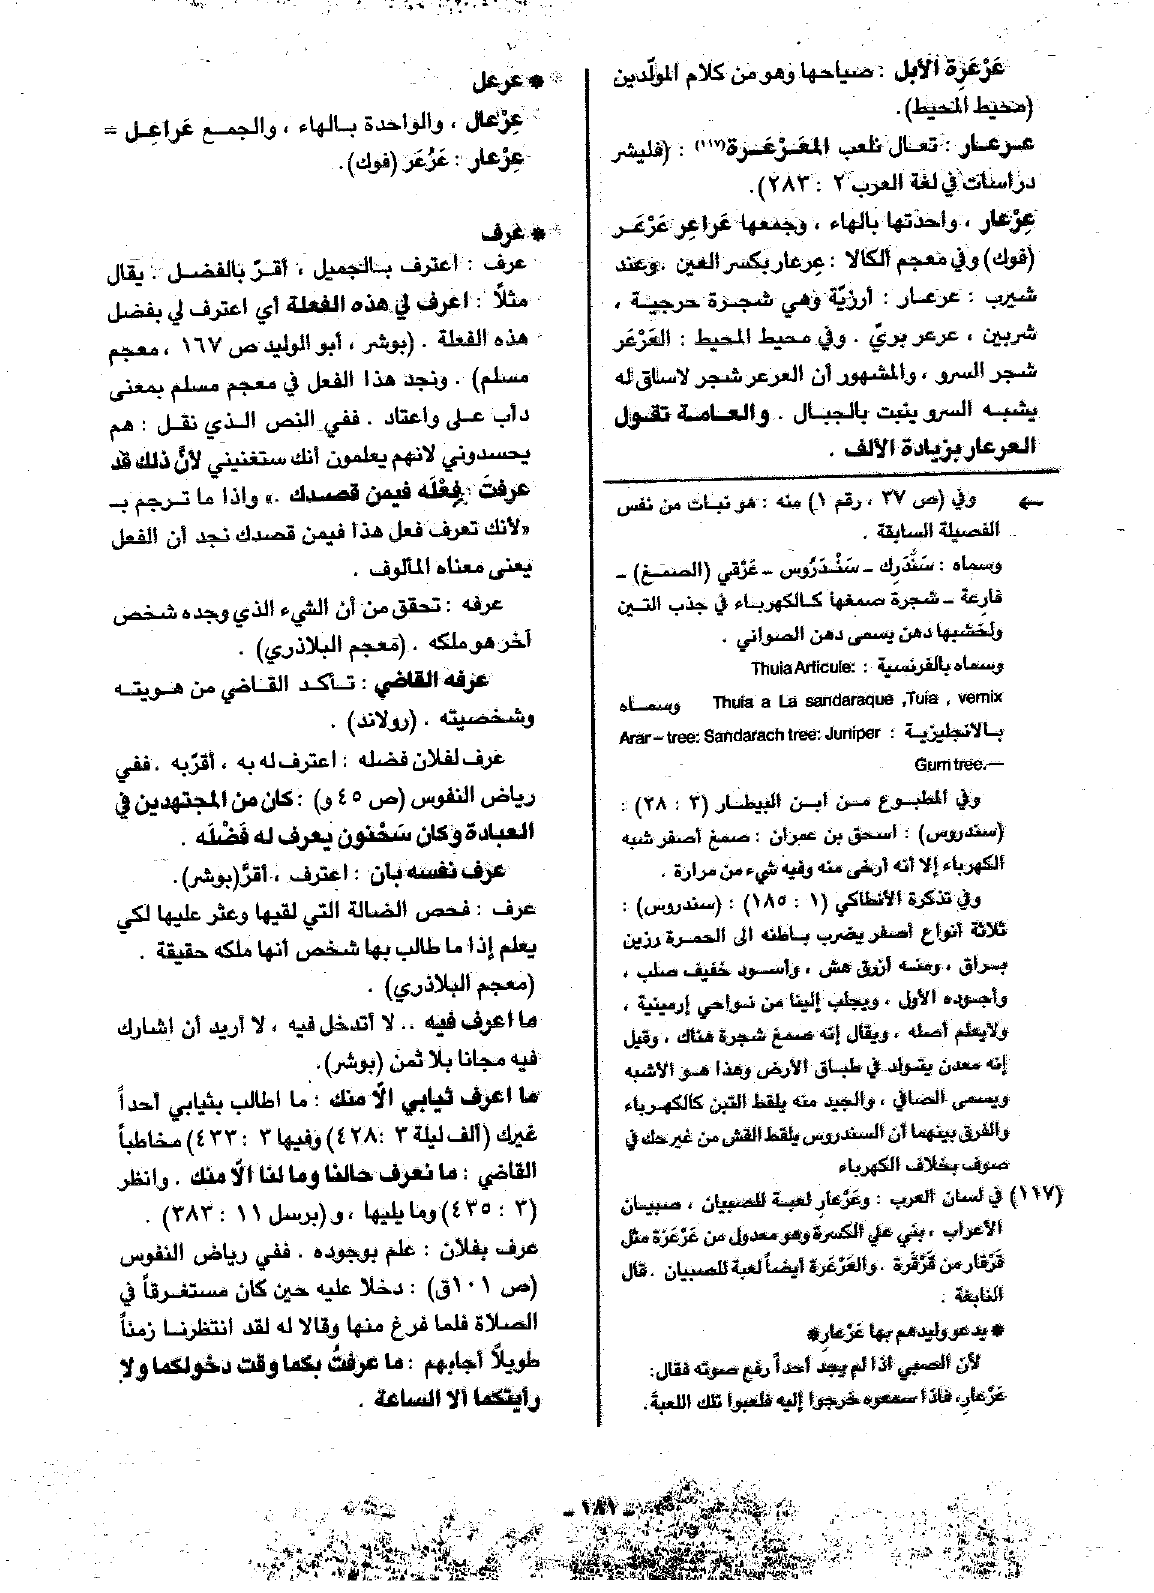 عَرْعَرة الأبل : صياحها وهو من كلام المولّدين
(محيط المحيط).
عرعار : تعال نلعب المعَرْعَرة(١١٧) : (فليشر
دراسات في لغة العرب ٢ : ٢٨٣).
عِرْعار ، واحدتها بالهاء ، وجمعها عَراعِر عَرْعَر
(فوك) وفي معجم ألكالا : عِرعار بكسر العين . وعند
شيرب : عرعار : أرزيّة وهي شجرة حرجية ،
شربين ، عرعر بريّ . وفي محيط المحيط : العَرْعَر
شجر السرو ، والمشهور أن العرعر شجر لاساق له
يشبه السرو ينبت بالجبال . والعامة تقول
العرعار بزيادة الألف .
← وفي (ص ٣٧ ، رقم ١) منه : هو نبات من نفس
الفصيلة السابقة .
وسماه : سَنْدَرِك ــ سَنْدَرُوس ــ عَرْقي (الصمغ) ــ
قارعة ــ شجرة صمغها كالكهرباء في جذب التين
ولخشبها دهن يسمى دهن الصواني .
وسماه بالفرنسية : Thuia Articule:
Thuia a La sandaraque ,Tuia , vernix وسماه
بالانجليزية : Arar – tree: Sandarach tree: Juniper
Gum tree.—
وفي المطبوع من أبن البيطار (٣ : ٣٨) :
(سندروس) : اسحق بن عمران : صمغ أصفر شبه
الكهرباء إلا أنه أرخى منه وفيه شيء من مرارة .
وفي تذكرة الأنطاكي (١ : ١٨٥) : (سندروس) :
ثلاثة أنواع أصفر يضرب باطنه الى الحمرة رزين
براق ، ومنه أزرق هش ، وأسود خفيف صلب ،
وأجوده الأول ، ويجلب إلينا من نواحي إرمينية ،
ولايعلم أصله ، ويقال إنه صمغ شجرة هناك ، وقيل
إنه معدن يتولد في طباق الأرض وهذا هو الأشبه
ويسمى الصافي ، والجيد منه يلقط التبن كالكهرباء
والفرق بينهما أن السندروس يلقط القش من غير حك في
صوف بخلاف الكهرباء
(١١٧) في لسان العرب : وعَرْعارِ لعبة للصبيان ، صبيان
الأعراب ، بني على الكسرة وهو معدول من عَرْعَرَة مثل
قَرْقار من قَرْقَرة . والعَرْعَرة أيضاً لعبة للصبيان . قال
النابغة .
* يدعو وليدهم بها عَرْعارِ*
لأن الصبي اذا لم يجد أحداً رفع صوته فقال:
عَرْعارِ، فاذا سمعوه خرجوا إليه فلعبوا تلك اللعبة.
* عرعل
عِرْعال ، والواحدة بالهاء ، والجمع عَراعِل =
عِرْعار : عَرْعَر (فوك).
* عرف
عرف : اعترف بالجميل ، أقرّ بالفضل . يقال
مثلاً : اعرف لي هذه الفعلة أي اعترف لي بفضل
هذه الفعلة . (بوشر ، أبو الوليد ص ١٦٧ ، معجم
مسلم) . ونجد هذا الفعل في معجم مسلم بمعنى
دأب على واعتاد . ففي النص الذي نقل : هم
يحسدوني لانهم يعلمون أنك ستغنيني لأنَّ ذلك قد
عرفتَ بِفِعْلَه فيمن قصدك .» واذا ما ترجم بـ
«لأنك تعرف فعل هذا فيمن قصدك نجد أن الفعل
يعنى معناه المألوف .
عرفه : تحقق من أن الشيء الذي وجده شخص
آخر هو ملكه . (معجم البلاذري) .
عرفه القاضي : تأكد القاضي من هويته
وشخصيته . (رولاند) .
عرف لفلان فضله : اعترف له به ، أقرّبه . ففي
رياض النفوس (ص ٤٥ و) : كان من المجتهدين في
العبادة وكان سَحْنون يعرف له فَضْلَه .
عرف نفسه بأن : اعترف ، أقرَّ(بوشر).
عرف : فحص الضالة التي لقيها وعثر عليها لكي
يعلم إذا ما طالب بها شخص أنها ملكه حقيقة .
(معجم البلاذري) .
ما اعرف فيه .. لا أتدخل فيه ، لا أريد أن اشارك
فيه مجانا بلا ثمن (بوشر).
ما اعرف ثيابي الّا منك : ما اطالب بثيابي أحداً
غيرك (ألف ليلة ٣ :٤٢٨) وفيها ٣ :٤٣٣) مخاطباً
القاضي : ما نعرف حالنا وما لنا الّا منك . وانظر
(٣ : ٤٣٥) وما يليها ، و (برسل ١١ : ٣٨٣) .
عرف بفلان : علم بوجوده . ففي رياض النفوس
(ص ١٠١ق) : دخلا عليه حين كان مستغرقاً في
الصلاة فلما فرغ منها وقالا له لقد انتظرنا زمناً
طويلاً أجابهم : ما عرفتُ بكما وقت دخولكما ولا
رأيتكما الا الساعة .
ــ ١٨١ ــ